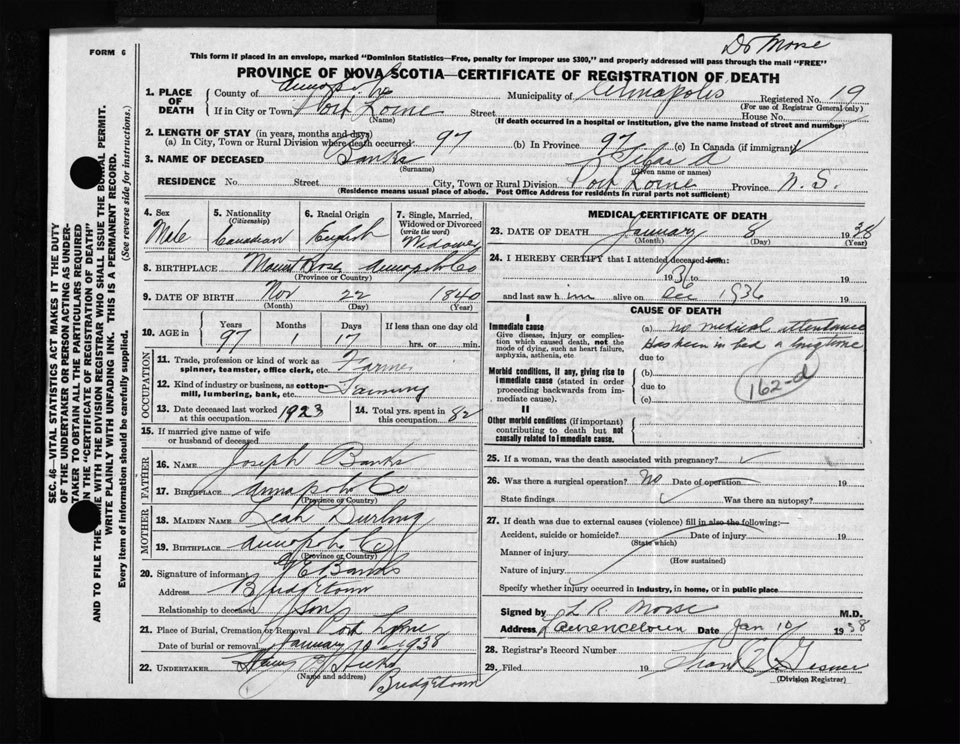 FORM 6
Dr Morse
This form if placed in an envelope, marked "Dominion Statistics—Free, penalty for improper use $300," and properly addressed will pass through the mail "FREE"
PROVINCE OF NOVA SCOTIA—CERTIFICATE OF REGISTRATION OF DEATH
1. PLACE OF DEATH
County of Municipality of Annapolis Registered No. 19
(For use of Registrar General only)
If in City or Town Port Lorne Street House No.
(Name) (If death occurred in a hospital or institution, give the name instead of street and number)
2. LENGTH OF STAY (in years, months and days)
(a) In City, Town or Rural Division where death occurred 97 (b) In Province 97 (c) In Canada (if immigrant)
3. NAME OF DECEASED Banks A
(Surname) (Given name or names)
RESIDENCE No. Street City, Town or Rural Division Port Lorne Province N. S.
(Residence means usual place of abode. Post Office Address for residents in rural parts not sufficient)
4. Sex
Male
5. Nationality
(Citizenship)
Canadian
6. Racial Origin
English
7. Single, Married,
Widowed or Divorced
(write the word)
Widower
8. BIRTHPLACE Mount Rose, Annap. Co
(Province or Country)
9. DATE OF BIRTH Nov 22 1840
(Month) (Day) (Year)
10. AGE in Years Months Days If less than one day
97 1 17 hrs. or min.
OCCUPATION
11. Trade, profession or kind of work as
spinner, teamster, office clerk, etc. Farmer
12. Kind of industry or business, as cotton-
mill, lumbering, bank, etc. Farming
13. Date deceased last worked
at this occupation 1923
14. Total yrs. spent in
this occupation 82
15. If married give name of wife
or husband of deceased
FATHER
16. NAME Joseph Banks
17. BIRTHPLACE Annap. Co
(Province or Country)
MOTHER
18. MAIDEN NAME Leah Durling
19. BIRTHPLACE Annap. Co
(Province or Country)
20. Signature of informant E Banks
Address Bridgetown
Relationship to deceased Son
21. Place of Burial, Cremation or Removal Port Lorne
Date of burial or removal January 10 1938
22. UNDERTAKER Hicks
(Name and address)
Bridgetown
MEDICAL CERTIFICATE OF DEATH
23. DATE OF DEATH January 8 1938
(Month) (Day) (Year)
24. I HEREBY CERTIFY that I attended deceased from:
1936 19
and last saw him alive on Dec 1936 19
CAUSE OF DEATH
I
Immediate cause
Give disease, injury or complication which caused death, not the mode of dying, such as heart failure, asphyxia, asthenia, etc
(a) no medical attendance
Has been in bed a long time
due to
Morbid conditions, if any, giving rise to immediate cause (stated in order proceeding backwards from immediate cause).
(b)
due to
(c)
162-d
II
Other morbid conditions (if important) contributing to death but not causally related to immediate cause.
25. If a woman, was the death associated with pregnancy?
26. Was there a surgical operation? No Date of operation 19
State findings Was there an autopsy?
27. If death was due to external causes (violence) fill in also the following:—
Accident, suicide or homicide? Date of injury 19
(State which)
Manner of injury
(How sustained)
Nature of injury
Specify whether injury occurred in Industry, in home, or in public place
Signed by L R Morse M.D.
Address Lawrencetown Date Jan 10 1938
28. Registrar's Record Number
29. Filed 19 Gesner
(Division Registrar)
SEC. 46—VITAL STATISTICS ACT MAKES IT THE DUTY
OF THE UNDERTAKER OR PERSON ACTING AS UNDER-
TAKER TO OBTAIN ALL THE PARTICULARS REQUIRED
IN THE "CERTIFICATE OF REGISTRATION OF DEATH"
AND TO FILE THE SAME WITH THE DIVISION REGISTRAR WHO SHALL ISSUE THE BURIAL PERMIT.
WRITE PLAINLY WITH UNFADING INK. THIS IS A PERMANENT RECORD.
Every item of information should be carefully supplied. (See reverse side for instructions.)